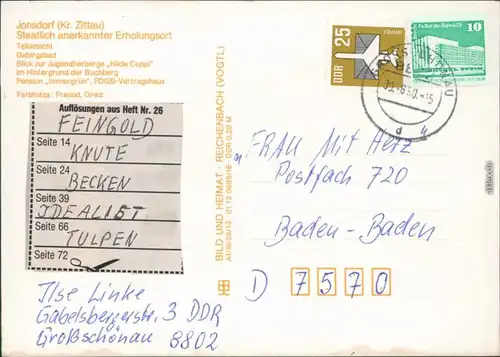 Jonsdorf (Kr. Zittau)
Staatlich anerkannter Erholungsort
Teilansicht
Gebirgsbad
Blick zur Jugendherberge „Hilde Coppi"
im Hintergrund der Buchberg
Pension „Immergrün", FDGB-Vertragshaus
Farbfotos: Freund, Greiz
Auflösungen aus Heft Nr. 26
FEINGOLD
Seite 14
KNUTE
Seite 24
BECKEN
Seite 39
IDEALIST
Seite 66
TULPEN
Seite 72
BILD UND HEIMAT · REICHENBACH (VOGTL)
DDR 0,20 M
25
DDR
10
FRAU Mit Herz
Postfach 720
Baden-Baden
D 7570
Ilse Linke
Gabelsbergerstr. 3 DDR
Großschönau 8802